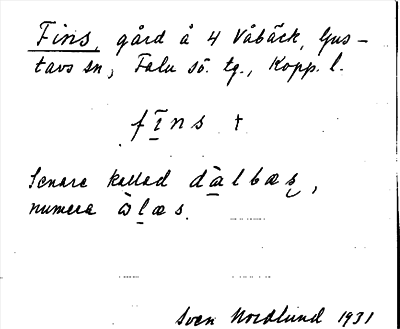 Fins, gård å 4 Våbäck, Gus-
tavs sn, Falu sö. tg., Kopp. l.
fīns †
Senare kallad dàlbæʂ,
numera ὼlæs.
Sven Nordlund 1931